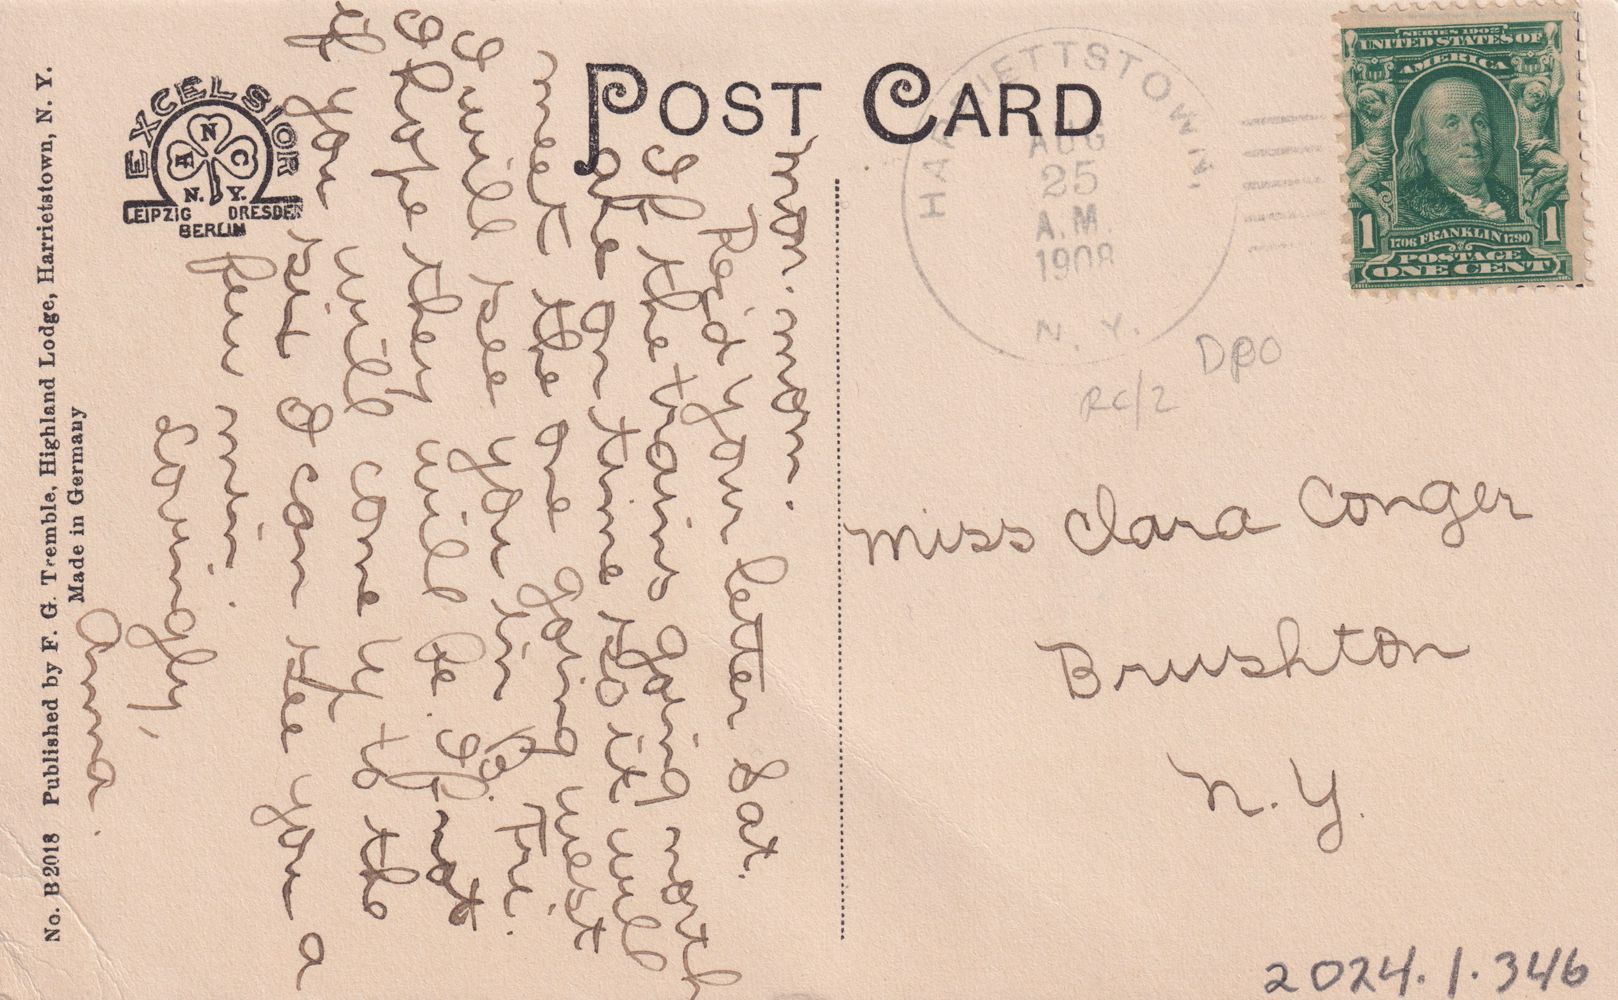 POST CARD
EXCELSIOR
A N C
N. Y.
LEIPZIG DRESDEN
BERLIN
No. B2018 Published by F. G. Tremble, Highland Lodge, Harrietstown, N. Y.
Made in Germany
mon. morn.
Re'd your letter Sat.
If the trains going north
are on time so it will
meet the one going west
I will see you in B. Fri.
I hope they will be. If not
if you will come up to the
sit I can see you a
few min.
Lovingly,
Anna.
HARRIETTSTOWN.
AUG
25
A.M.
1908
N. Y.
SERIES 1902
UNITED STATES OF
AMERICA
1 1
1706 FRANKLIN 1790
POSTAGE
ONE CENT
DPO
RC/2
Miss Clara Conger
Brushton
N. Y.
2024.1.346